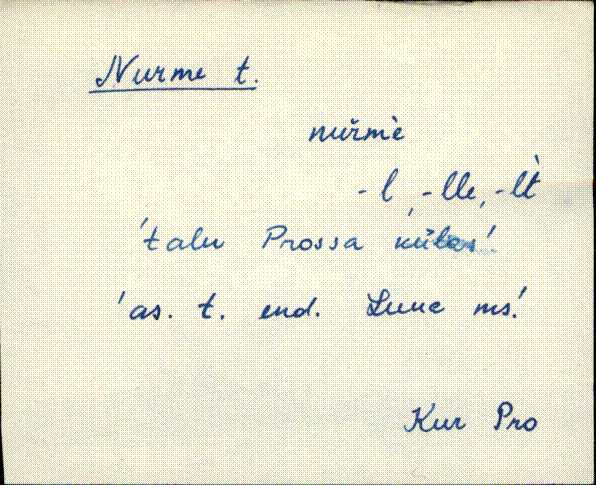 Nurme t.
nuřmè
-l, -lle, -lt̀
'talu Prossa külas'.
'as. t. end. Luua ms.'
Kur Pro